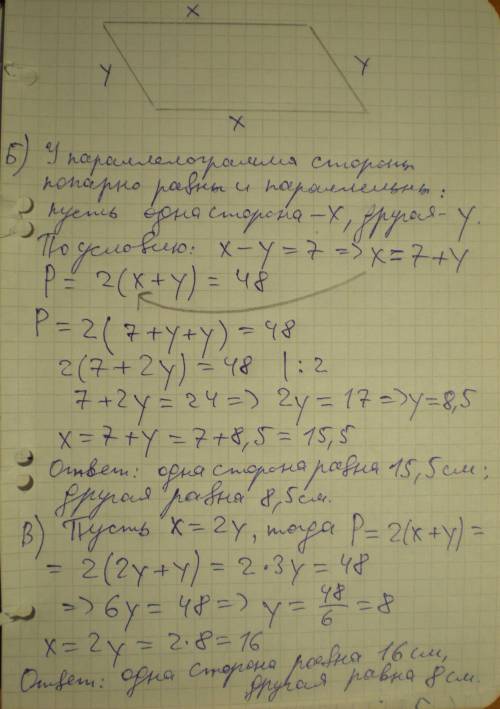 x
y
y
x
Б) У параллелограмма стороны
попарно равны и параллельны:
пусть одна сторона – x, другая – y.
По условию: x – y = 7 => x = 7 + y
P = 2(x + y) = 48
P = 2(7 + y + y) = 48
2(7 + 2y) = 48 | : 2
7 + 2y = 24 => 2y = 17 => y = 8,5
x = 7 + y = 7 + 8,5 = 15,5
Ответ: одна сторона равна 15,5 см;
другая равна 8,5 см.
В) Пусть x = 2y, тогда P = 2(x + y) =
= 2(2y + y) = 2 · 3y = 48
=> 6y = 48 => y = 48/6 = 8
x = 2y = 2 · 8 = 16
Ответ: одна сторона равна 16 см,
другая равна 8 см.